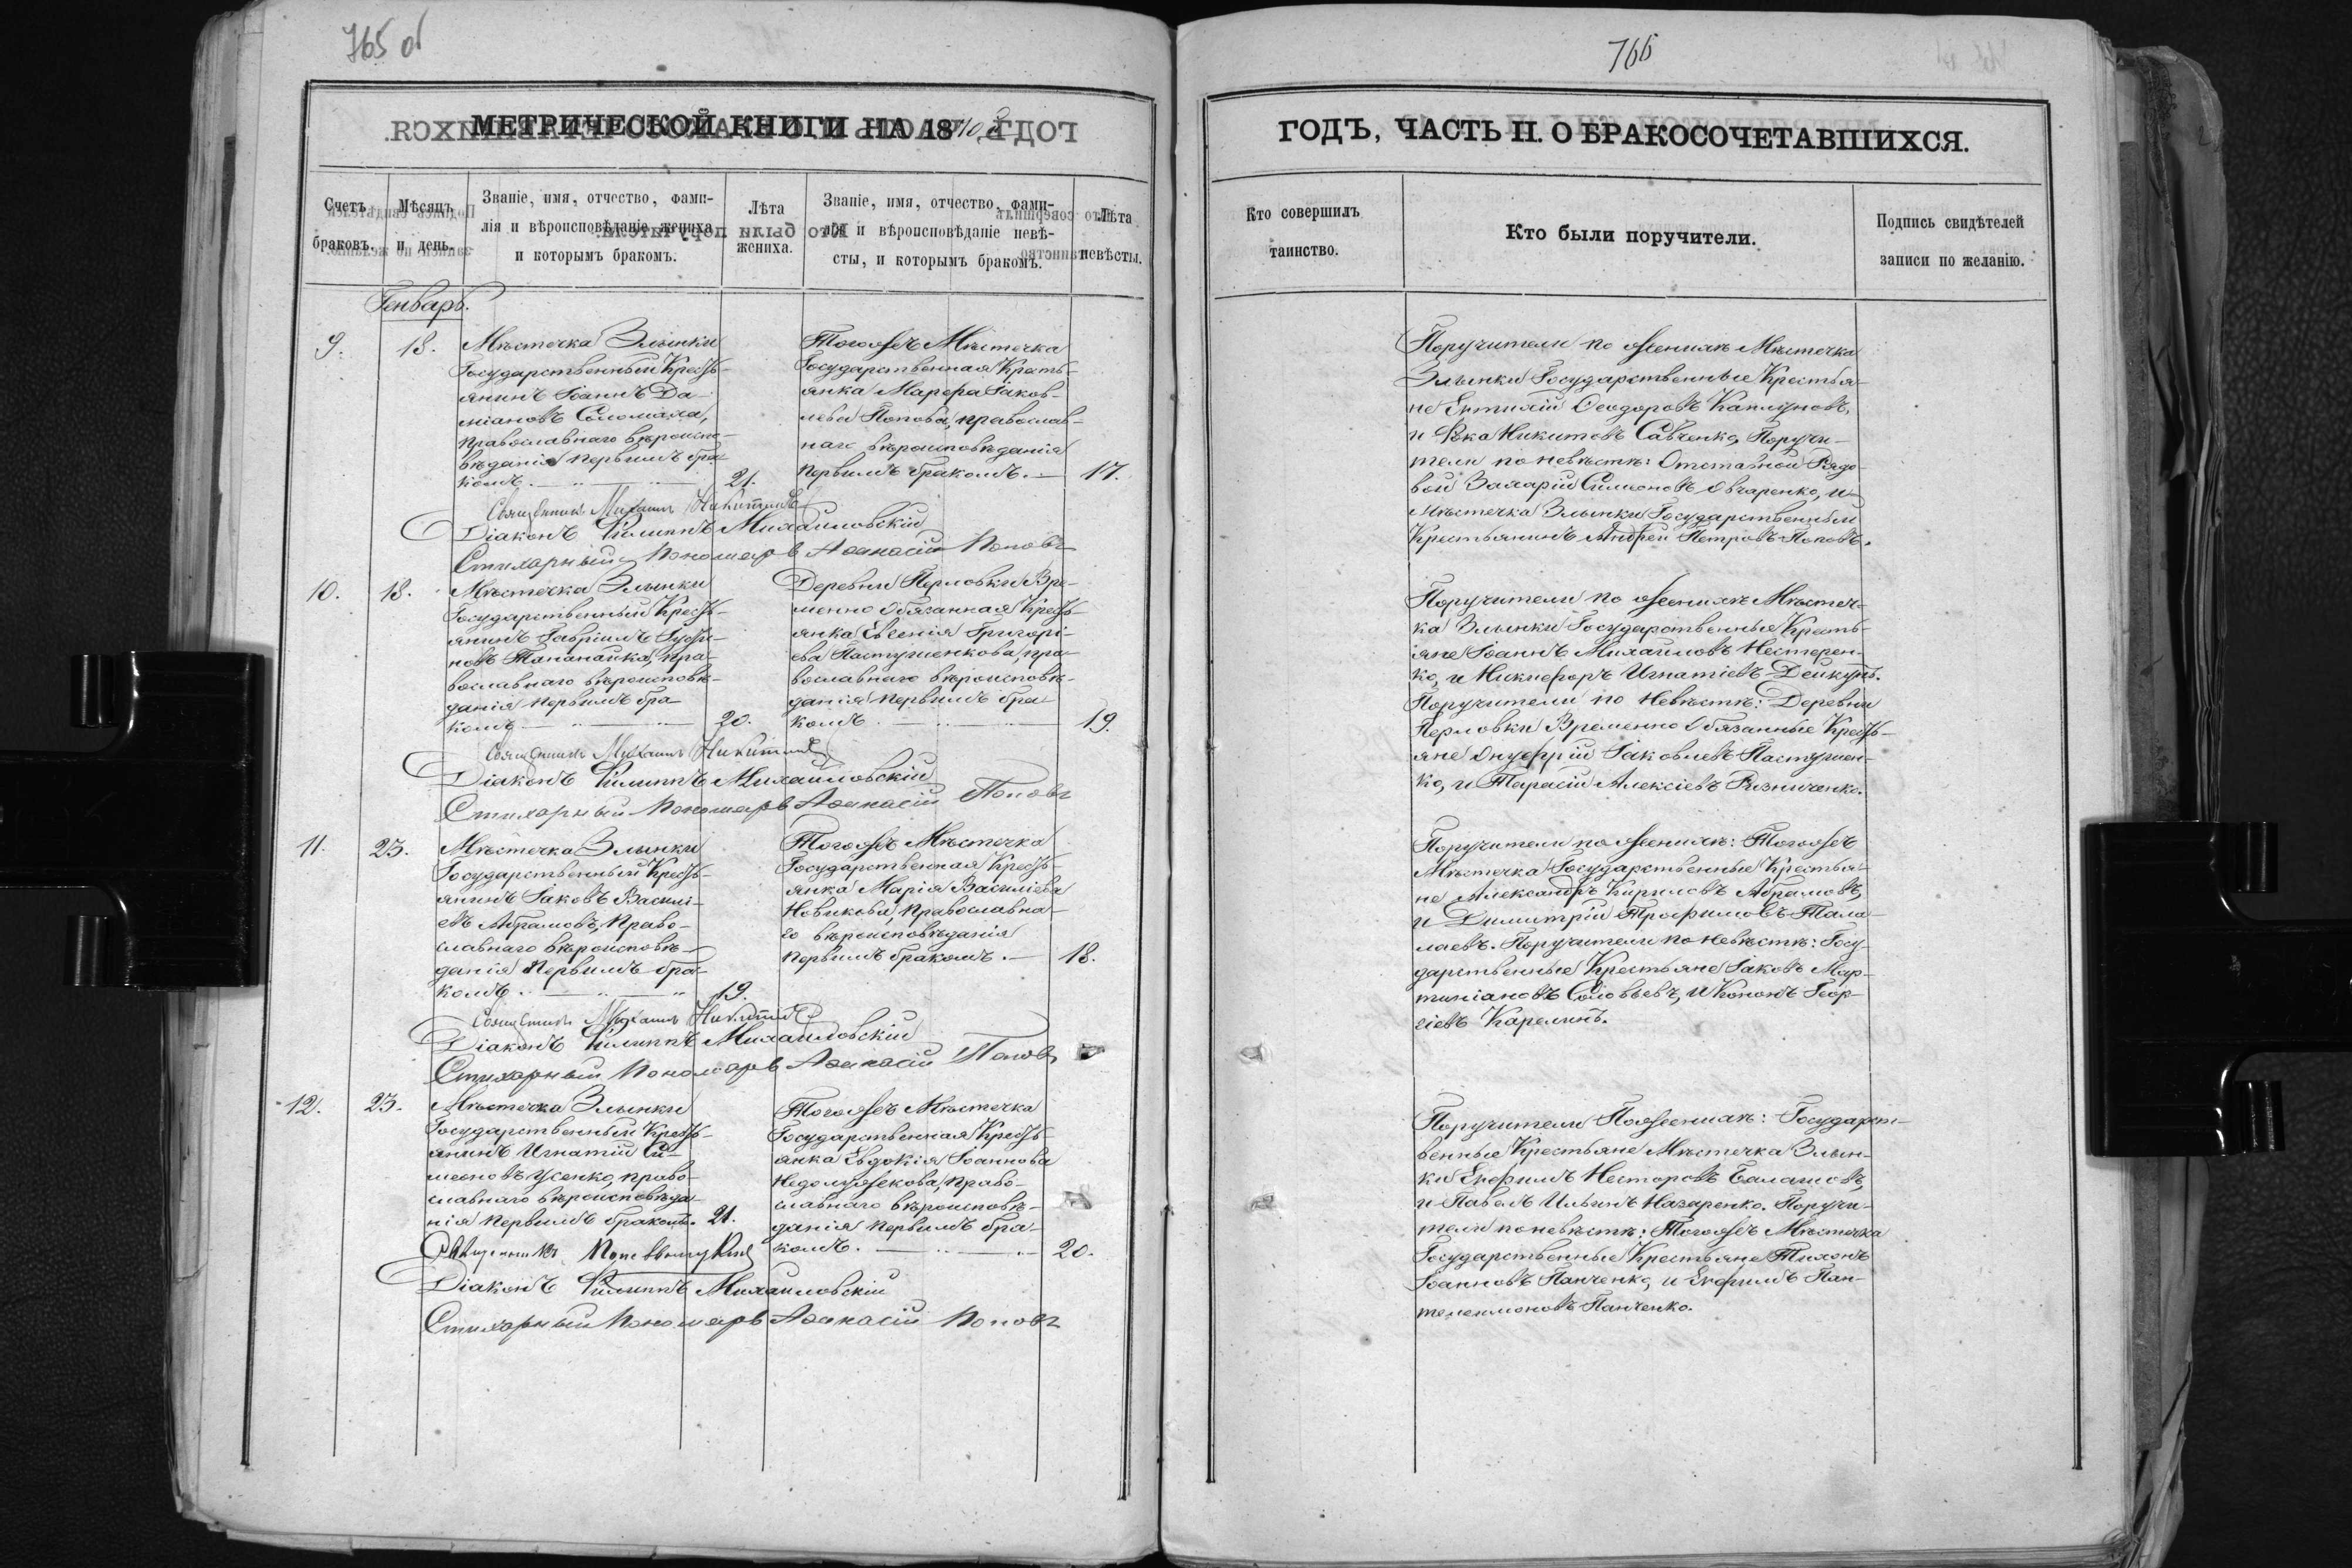 765 об
МЕТРИЧЕСКОЙ КНИГИ НА 18
Счетъ браковъ.
Мѣсяцъ и день.
Званіе, имя, отчество, фами-
лія и вѣроисповѣданіе жениха
и которымъ бракомъ.
Лѣта
жениха.
Званіе, имя, отчество, фами-
лія и вѣроисповѣданіе невѣ-
сты, и которымъ бракомъ.
Лѣта
невѣсты.
Генварь.
9.
18.
Мѣстечка Злынки
Государственный Кресть-
янинъ Іоаннъ Да-
міановъ Соломаха,
православнаго вѣроиспо-
вѣданія первымъ бра-
комъ.
21.
Тогожъ Мѣстечка
Государственная Кресть-
янка Марѳа Іаков-
лева Попова, православ-
наго вѣроисповѣданія
первымъ бракомъ.
17.
Священникъ Михаилъ Никитинъ
Діаконъ Филиппъ Михайловскій
Стихарный Пономарь Аѳанасій Поповъ
10.
18.
Мѣстечка Злынки
Государственный Кресть-
янинъ Гавріилъ Іусти-
новъ Тананайка, пра-
вославнаго вѣроисповѣ-
данія первымъ бра-
комъ
20.
Деревни Перловки Вре-
менно Обязанная Кресть-
янка Евгенія Григорі-
ева Пастушенкова, пра-
вославнаго вѣроисповѣ-
данія первымъ бра-
комъ.
19.
Священникъ Михаилъ Никитинъ
Діаконъ Филиппъ Михайловскій
Стихарный Пономарь Аѳанасій Поповъ
11.
23.
Мѣстечка Злынки
Государственный Кресть-
янинъ Іаковъ Василі-
евъ Абрамовъ, право-
славнаго вѣроисповѣ-
данія первымъ бра-
комъ.
19.
Тогожъ Мѣстечка
Государственная Кресть-
янка Марія Василіева
Новикова, православна-
го вѣроисповѣданія
первымъ бракомъ.
18.
Священникъ Михаилъ Никитинъ
Діаконъ Филиппъ Михайловскій
Стихарный Пономарь Аѳанасій Поповъ
12.
23.
Мѣстечка Злынки
Государственный Кресть-
янинъ Игнатій Си-
меоновъ Усенко, право-
славнаго вѣроисповѣда-
нія первымъ бракомъ.
21.
Тогожъ Мѣстечка
Государственная Кресть-
янка Евдокія Іоаннова
Недолужекова, право-
славнаго вѣроисповѣ-
данія первымъ бра-
комъ.
20.
Священникъ
Діаконъ Филиппъ Михайловскій
Стихарный Пономарь Аѳанасій Поповъ
766
ГОДЪ, ЧАСТЬ II. О БРАКОСОЧЕТАВШИХСЯ.
Кто совершилъ
таинство.
Кто были поручители.
Подпись свидѣтелей
записи по желанію.
Поручители по женихѣ Мѣстечка
Злынки Государственные Крестья-
не Евтихій Ѳеодоровъ Каплуновъ,
и Лука Никитовъ Савченко, Поручи-
тели по невѣстѣ: Отставной Рядо-
вой Захарій Симеоновъ Овчаренко, и
Мѣстечка Злынки Государственный
Крестьянинъ Андрей Петровъ Поповъ.
Поручители по женихѣ Мѣстеч-
ка Злынки Государственные Кресть-
яне Іоаннъ Михайловъ Нестерен-
ко, и Никифоръ Игнатіевъ Дейкунъ.
Поручители по Невѣстѣ: Деревни
Перловки Временно Обязанные Кресть-
яне Онуфрій Іаковлевъ Пастушен-
ко, и Тарасій Алексіевъ Рѣзниченко.
Поручители по женихѣ: Тогожъ
Мѣстечка Государственные Крестья-
не Александръ Кириловъ Абрамовъ,
и Димитрій Трофимовъ Тала-
лаевъ. Поручители по невѣстѣ: Госу-
дарственные Крестьяне Іаковъ Мар-
тиніановъ Соловьевъ, и Кононъ Геор-
гіевъ Карелинъ.
Поручители По женихѣ: Государст-
венные Крестьяне Мѣстечка Злын-
ки Ефимъ Несторовъ Балашовъ,
и Павелъ Ильинъ Назаренко. Поручи-
тели по невѣстѣ: Тогожъ Мѣстечка
Государственные Крестьяне Тихонъ
Іоанновъ Панченко, и Ефимъ Пан-
телеимоновъ Панченко.